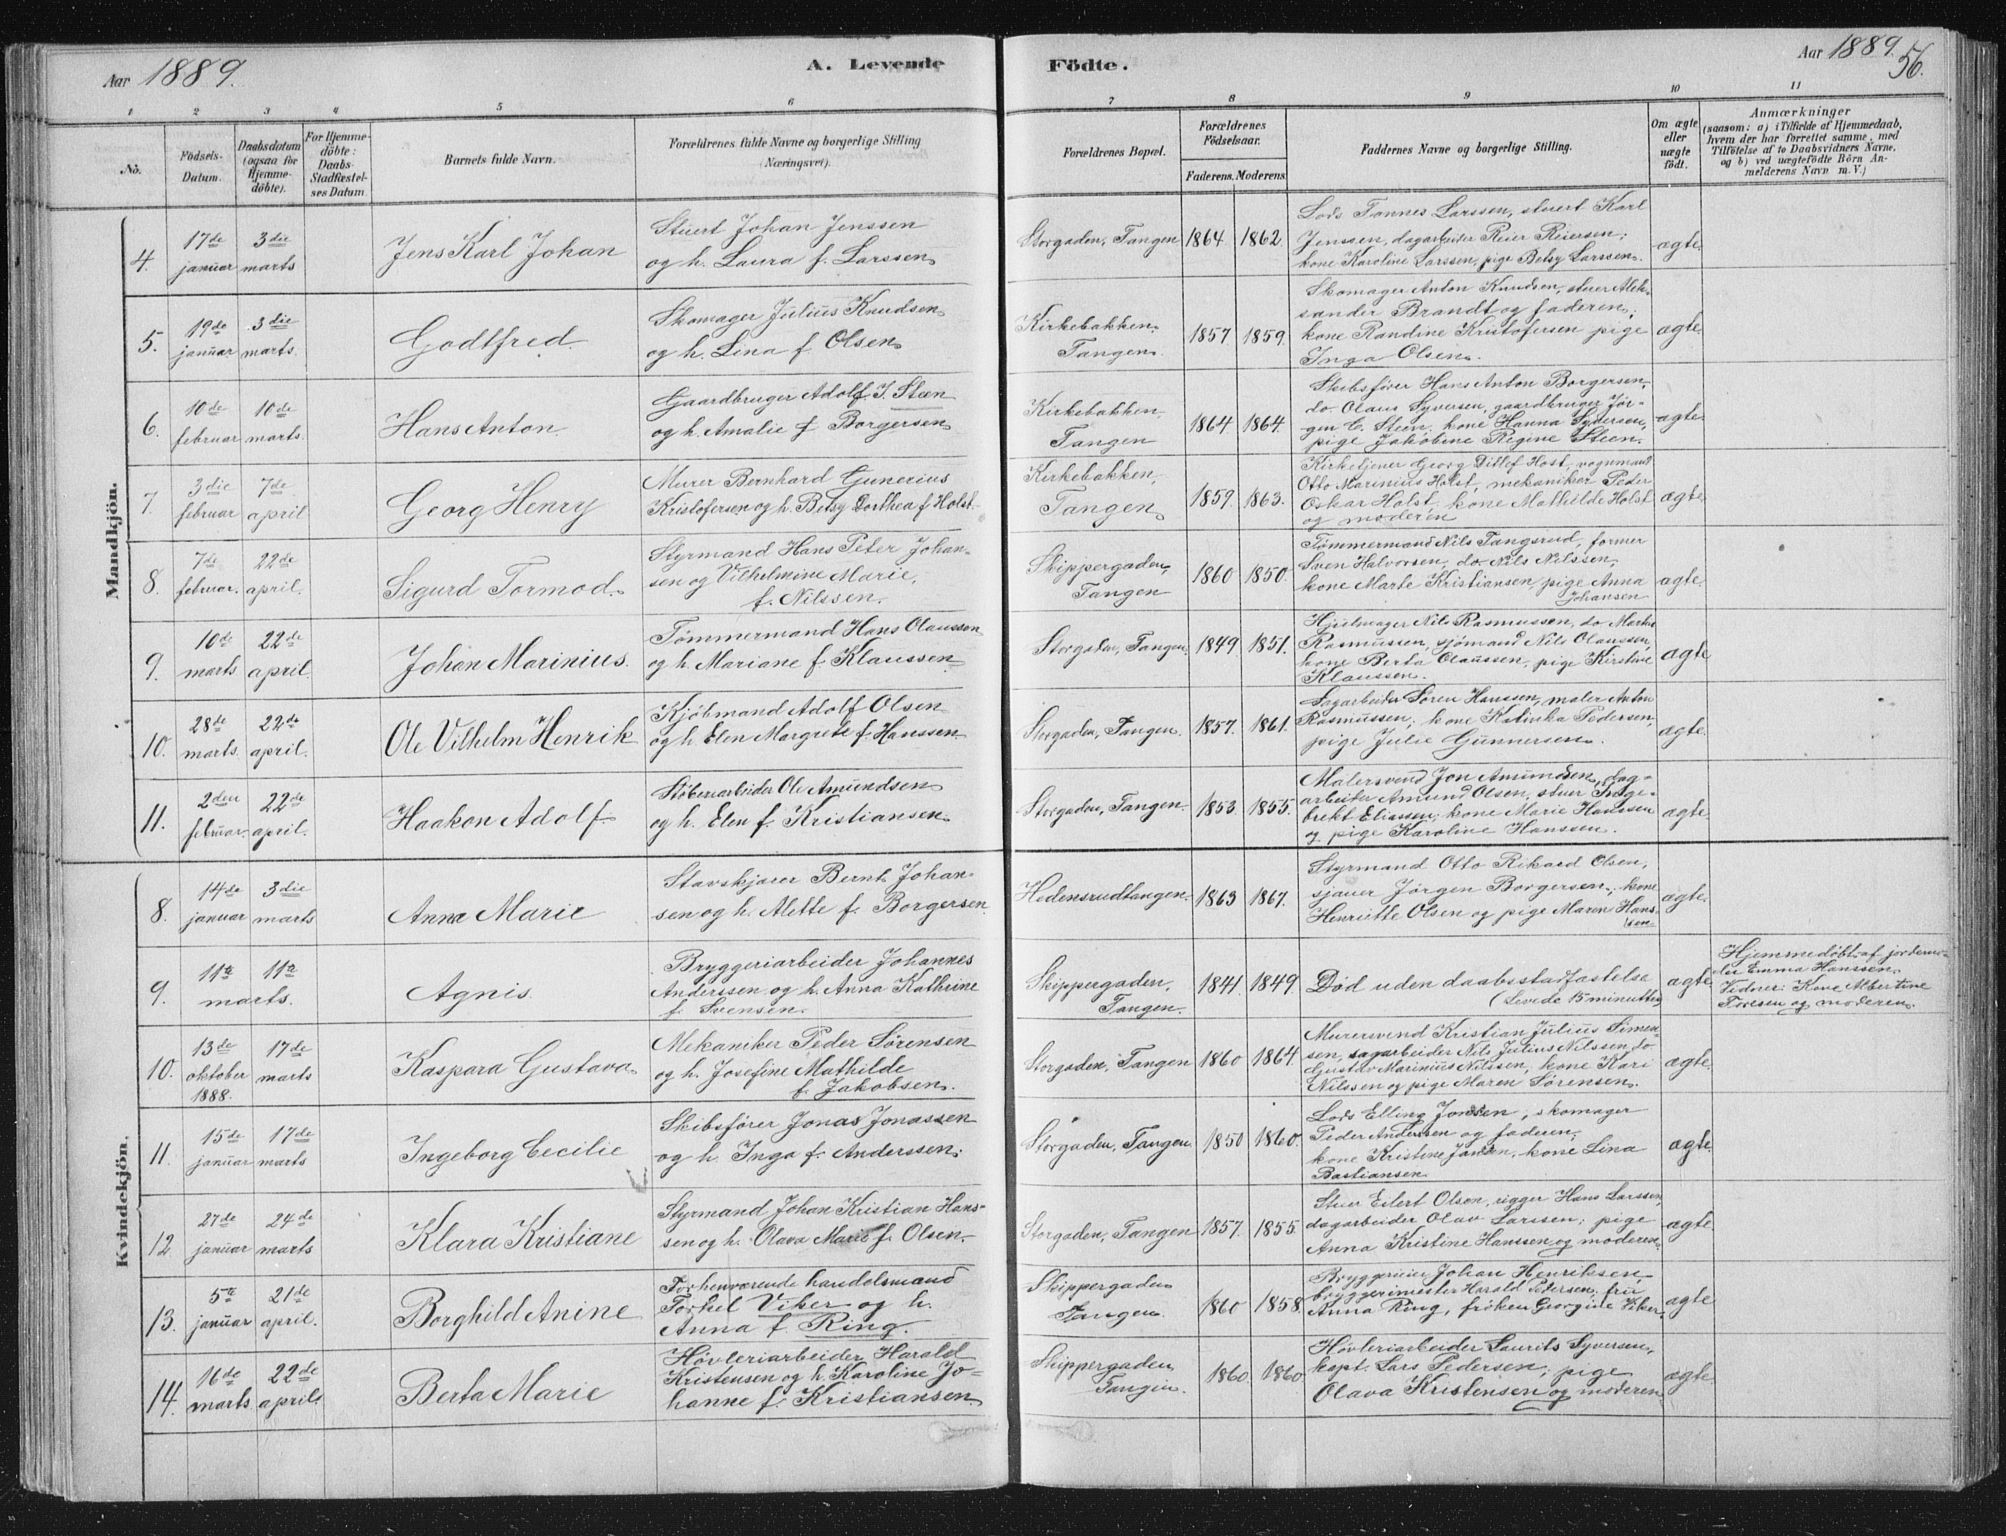 Aar 1889.
A. Levende
Födte.
Aar 1889.
56.
1 2 3 4 5 6
7 8 9 10 11
No.
Födsels-
Datum.
Daabsdatum
(ogsaa for
Hjemme-
döbte).
For Hjemme-
döbte:
Daabs-
Stadfæstel-
ses Datum
Barnets fulde Navn.
Forældrenes fulde Navne og borgerlige Stilling
(Næringsvei).
Forældrenes Bopæl.
Forældrenes
Födselsaar.
Faderens. Moderens.
Faddernes Navne og borgerlige Stilling.
Om ægte
eller
uægte
födt.
Anmærkninger
(saasom: a) i Tilfælde af Hjemmedaab,
hvem der har forrettet samme, med
Tilföielse af to Daabsvidners Navne,
og b) ved uægtefödte Börn An-
melderens Navn m. V.)
Mandkjön.
4.
17de
januar
3die
marts
Jens Karl Johan
Stuert Johan Jenssen
og h. Laura f. Larssen
Storgaden, Tangen
1864
1862
Lods Tønnes Larssen, stuert Karl
Jenssen, dagarbeider Reier Reiersen;
kone Karoline Larssen, pige Betsy Larssen.
ægte
5.
19de
januar
3die
marts.
Godtfred
Skomager Julius Knudsen
og h. Lina f. Olsen
Kirkebakken,
Tangen
1857
1859
Skomager Anton Knudsen, stuer Alek-
sander Brandt og faderen;
kone Randine Kristofersen pige
Inga Olsen.
ægte
6.
10de
februar
10de
marts.
Hans Anton
Gaardbruger Adolf J. Steen
og h. Amalie f. Borgersen
Kirkebakken,
Tangen
1864
1864
Skibsfører Hans Anton Borgersen,
do. Olaus Syversen, gaardbruger Jør-
gen C. Steen, kone Hanna Syversen,
pige Jakobine Regine Steen.
ægte
7.
3die
februar
7de
april
Georg Henry
Murer Bernhard Gunerius
Kristofersen og h. Betsy Dorthea f. Holst
Kirkebakken,
Tangen
1859.
1863.
Kirketjener Georg Ditlef Høst, vognmand
Otto Marinius Holst, mekaniker Peder
Oskar Holst, kone Mathilde Holst
og moderen
ægte
8.
7de
februar.
22de
april.
Sigurd Tormod.
Styrmand Hans Peter Johan-
sen og Vilhelmine Marie,
f. Nilssen.
Skippergaden,
Tangen
1860
1850.
Tømmermand Nils Tangerud, former
Sven Halvorsen, do. Nils Nilssen,
kone Marte Kristiansen, pige Anna
Johansen
ægte
9.
10de
marts
22de
april
Johan Marinius.
Tømmermand Hans Olaussen
og h. Mariane f. Klaussen
Storgaden, Tangen.
1849
1851.
Hjulmager Nils Rasmussen, do Martin
Rasmussen, sjømand Nils Olaussen,
kone Berta Olaussen, pige Kirstine
Klaussen.
ægte
10.
28de
marts.
22de
april.
Ole Vilhelm Henrik
Kjøbmand Adolf Olsen
og h. Elen Margrete f. Hanssen
Storgaden, Tangen.
1857.
1861.
Sagarbeider Søren Hanssen, maler Anton
Rasmussen; kone Katinka Pedersen,
pige Julie Gunnersen.
ægte.
11.
2den
februar.
22de
april.
Haakon Adolf.
Støberiarbeider Ole Amundsen
og h. Elen f. Kristiansen
Storgaden, Tangen.
1853
1855.
Malersvend Jon Amundsen, dag-
arbeider Amund Olsen, stuer Inge-
brekt Eliassen; kone Marie Hanssen
og pige Karoline Hanssen.
ægte
Kvindekjön.
8.
14de
januar
3die
marts
Anna Marie
Stavskjærer Bernt Johan-
sen og h. Alette f. Borgersen.
Hedensrudtangen.
1863
1867.
Styrmand Otto Rikard Olsen,
sjauer Jørgen Borgersen; kone
Henriette Olsen og pige Maren Hans-
sen
ægte.
9.
11te
11te
marts.
Agnis.
Bryggeriarbeider Johannes
Anderssen og h. Anna Kathrine
f. Svensen.
Skippergaden,
Tangen.
1841.
1849.
Død uden daabsstadfæstelse
(Levede 15 minutter)
ægte
Hjemmedøbt af jordemo-
der Emma Hanssen.
Vidner: Kone Albertine
Toresen og moderen.
10.
13de
oktober
1888.
17de
marts
Kaspara Gustava
Mekaniker Peder Sørensen
og h. Josefine Mathilde
f. Jakobsen.
Storgaden, Tangen
1860
1864.
Murersvend Kristian Julius Simen-
sen, sagarbeider Nils Julius Nilssen, do
Gustav Marinius Nilssen, kone Kari
Nilssen og pige Maren Sørensen.
ægte.
11.
15de
januar
17de
marts
Ingeborg Cecilie
Skibsfører Jonas Jonassen
og h. Inga f. Anderssen.
Storgaden, Tangen.
1850
1860.
Lods Elling Jonsen, skomager
Peder Anderssen og faderen;
kone Kristine Jansen, kone Lina
Bastiansen
ægte.
12
27de
januar
24de
marts
Klara Kristiane
Styrmand Johan Kristian Hans-
sen og h. Olava Marie f. Olsen.
Storgaden, Tangen
1857.
1855.
Stuer Eilert Olsen, rigger Hans Larssen,
dagarbeider Olav Larssen; pige
Anna Kristine Hanssen og moderen.
ægte
13.
5te
januar
21de
april.
Borghild Anine
Forhenværende handelsmand
Torkel Viker og h.
Anna f. Ring.
Skippergaden
Tangen
1860
1858.
Bryggerieier Johan Henriksen,
bryggerimester Harald Pedersen, fru
Anna Ring, frøken Georgine Viker.
ægte
14.
16de
marts
22de
april.
Berta Marie
Høvleriarbeider Harald
Kristensen og h. Karoline Jo-
hanne f. Kristiansen
Skippergaden
Tangen.
1860.
1860
Høvleriarbeider Laurits Syversen,
kapt. Lars Pedersen; pige
Olava Kristensen og moderen
ægte